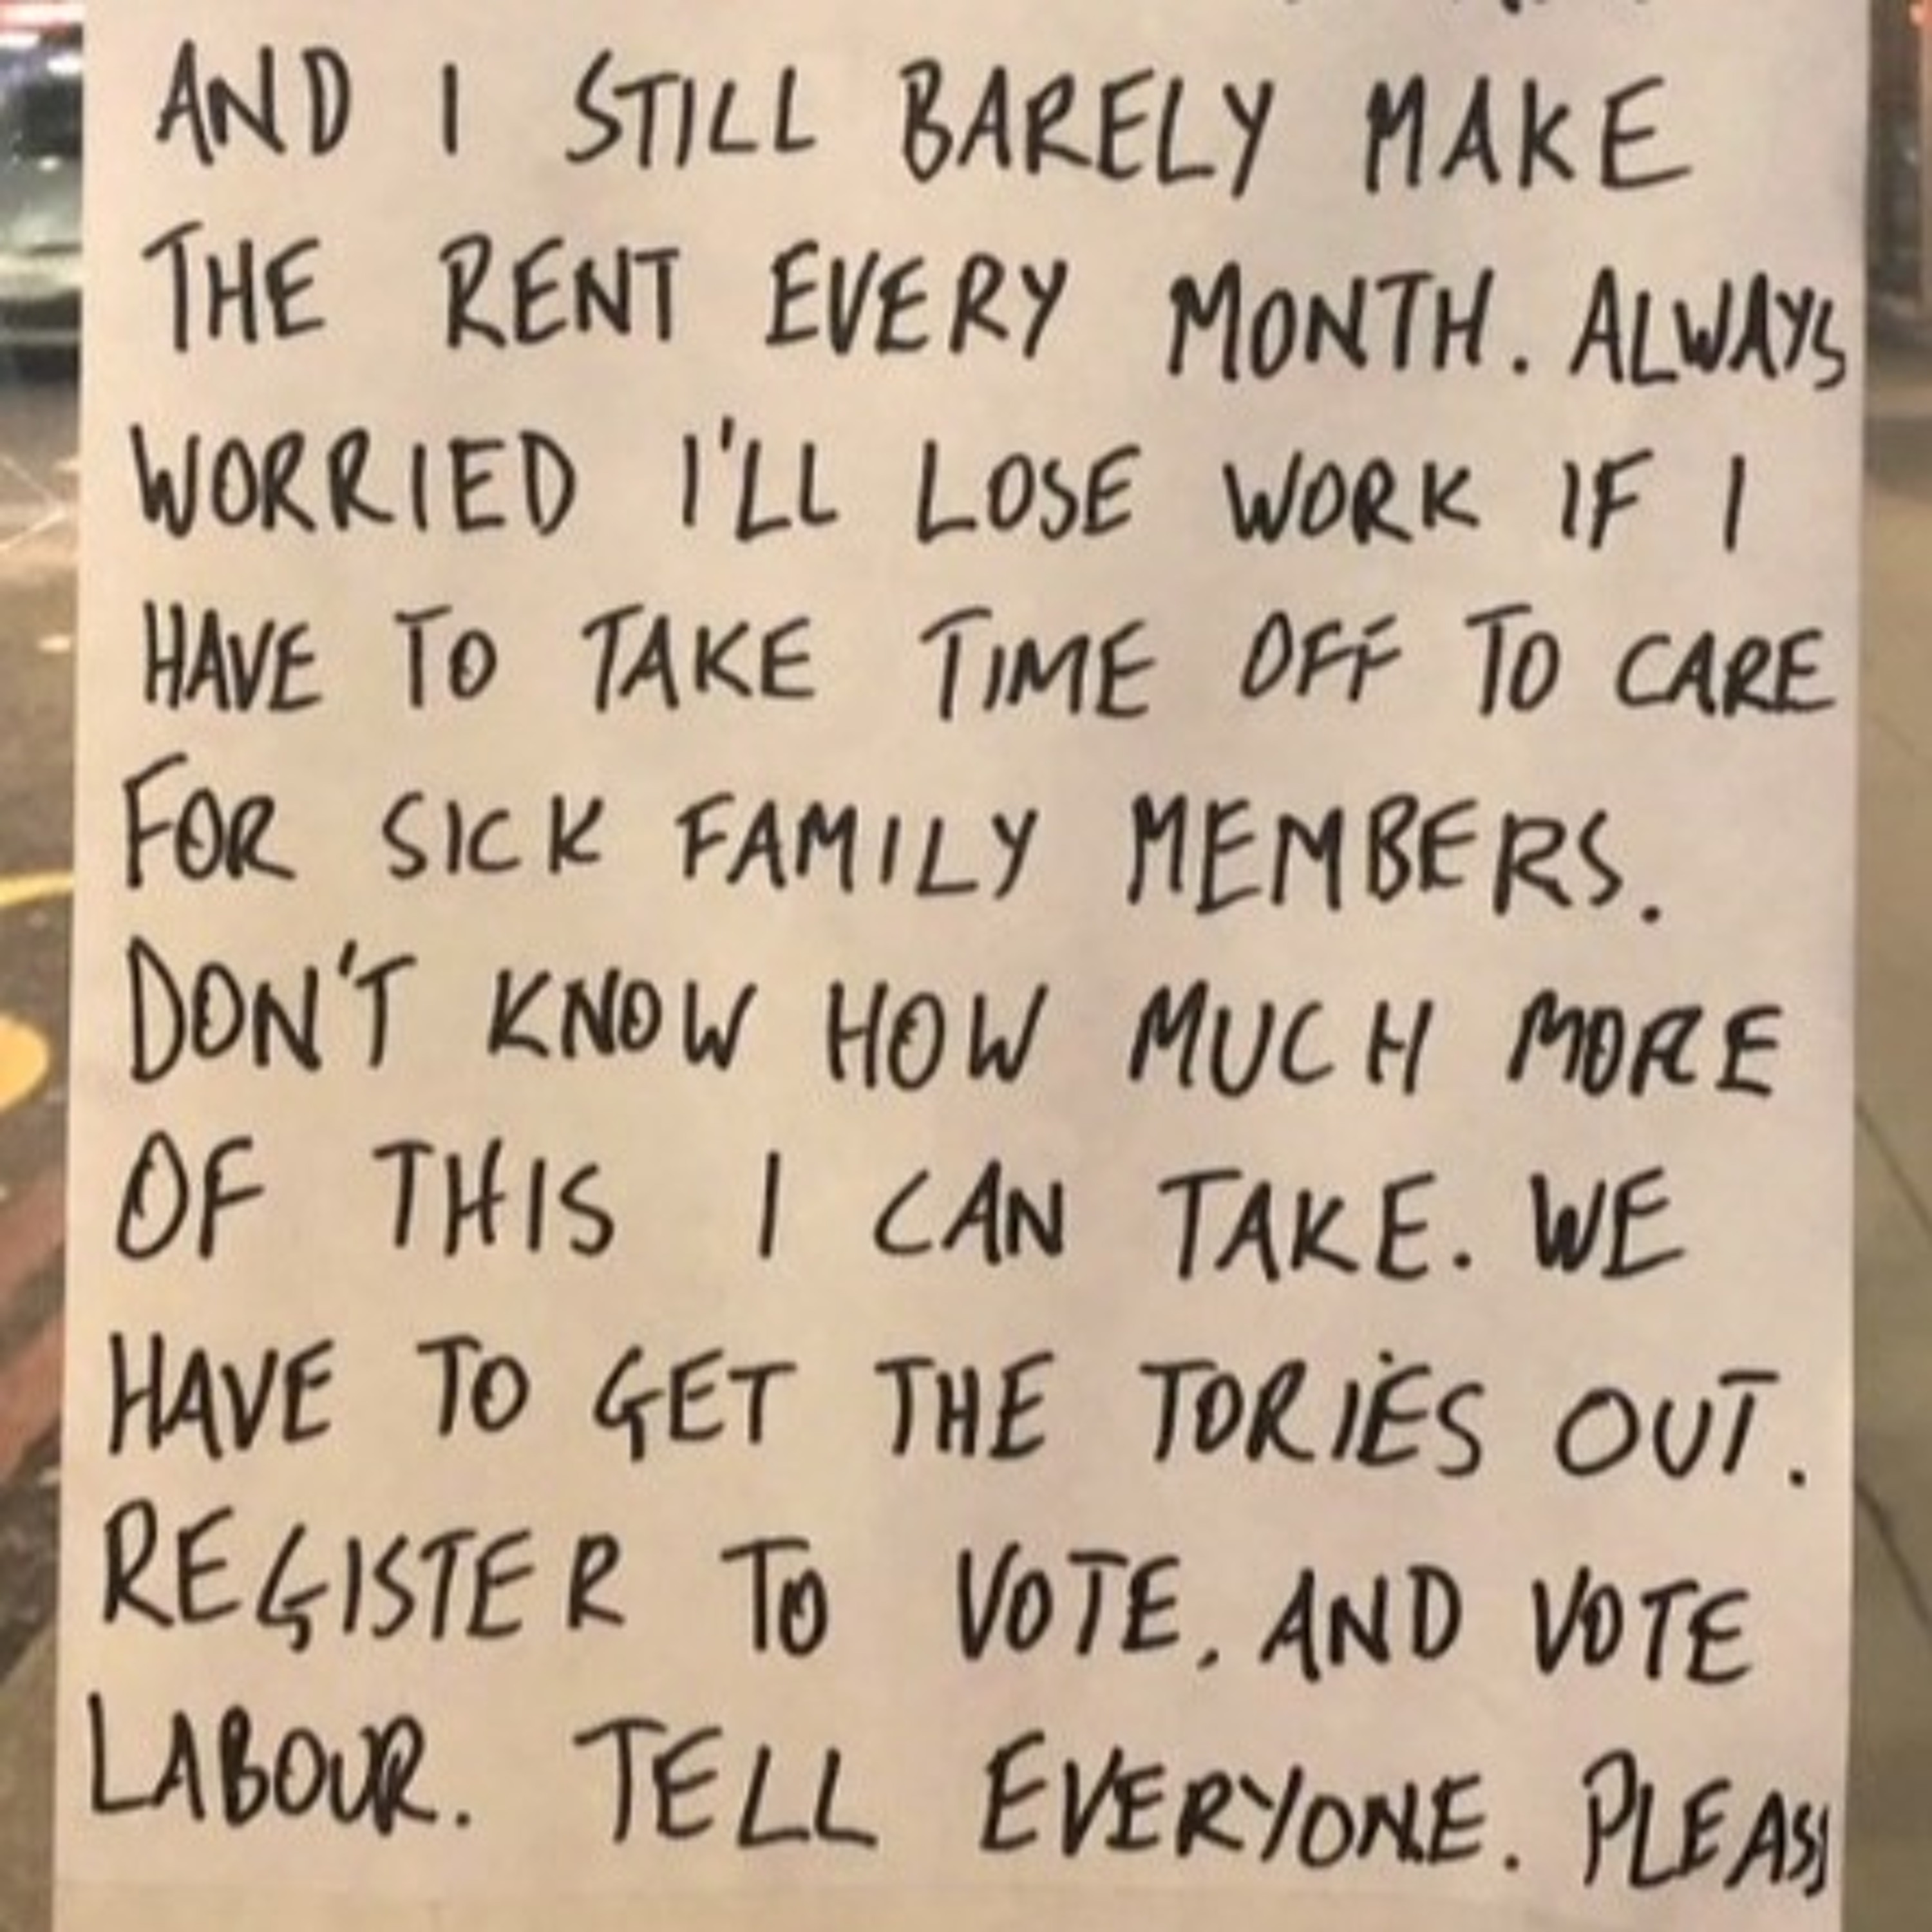 AND I STILL BARELY MAKE
THE RENT EVERY MONTH. ALWAYS
WORRIED I'LL LOSE WORK IF I
HAVE TO TAKE TIME OFF TO CARE
FOR SICK FAMILY MEMBERS.
DON'T KNOW HOW MUCH MORE
OF THIS I CAN TAKE. WE
HAVE TO GET THE TORIES OUT.
REGISTER TO VOTE. AND VOTE
LABOUR. TELL EVERYONE. PLEAS